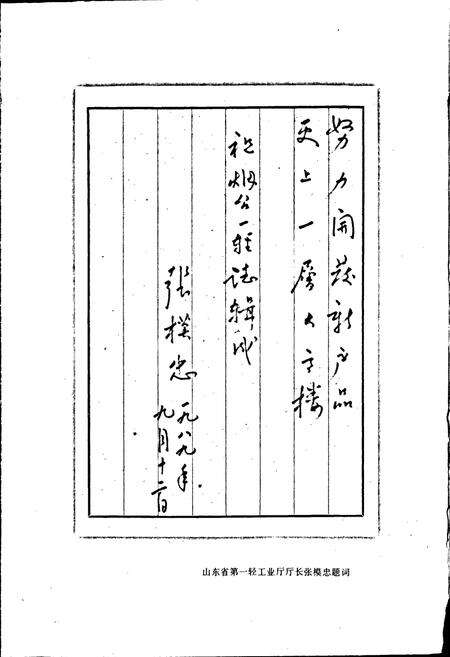 努力开发新产品
更上一层大高楼
祝烟台一轻志辑成
张模忠
一九八九年
九月十二日
山东省第一轻工业厅厅长张模忠题词